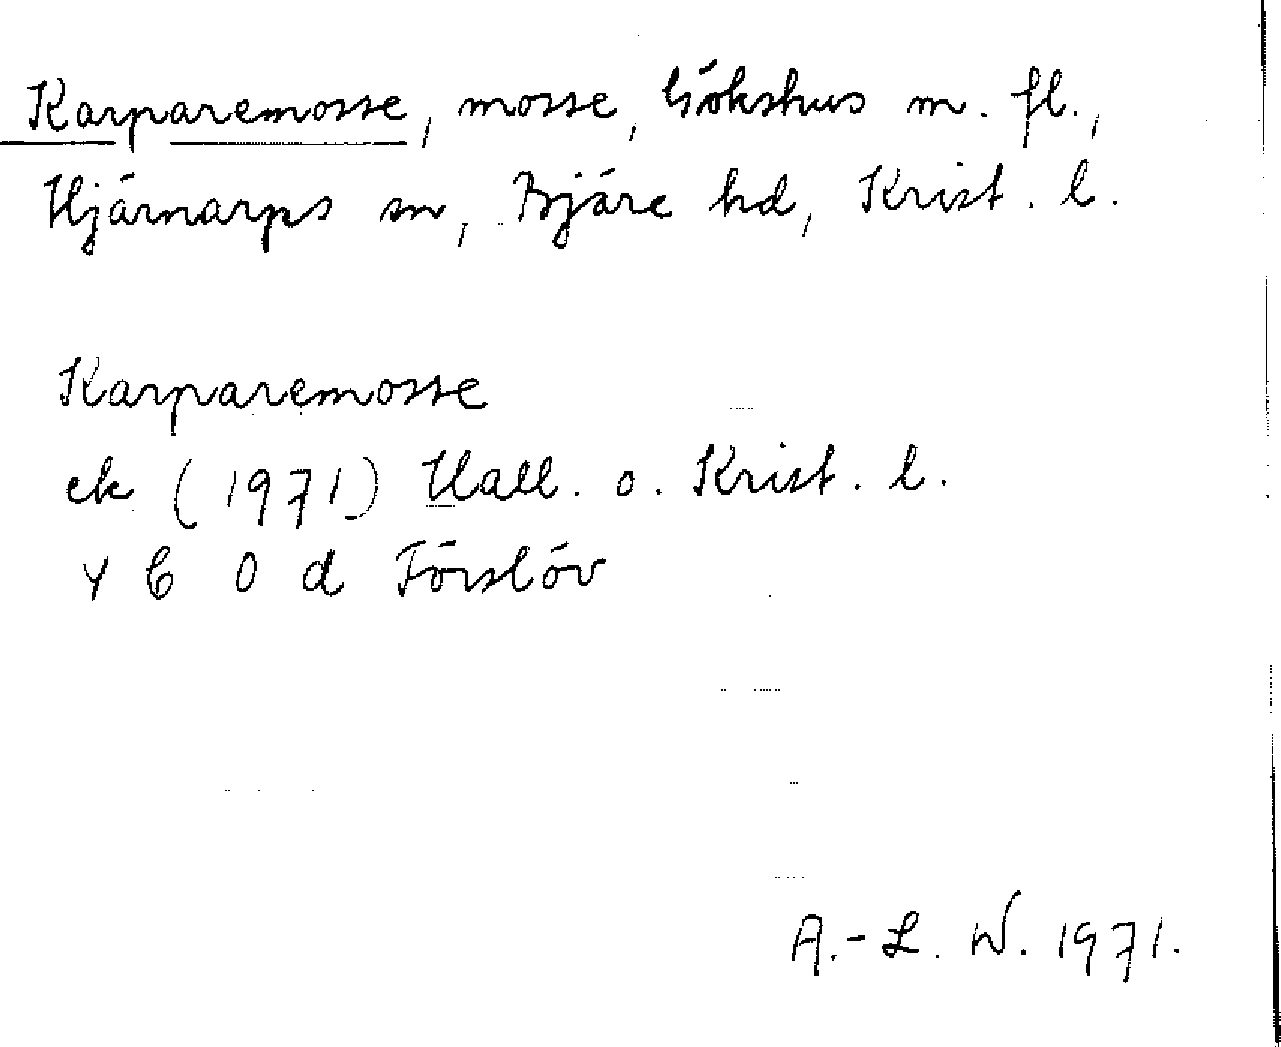 Karparemosse, mosse, Gökshus m. fl.,
Hjärnarps sn, Bjäre hd, Krist. l.
Karparemosse
ek (1971) Hall. o. Krist. l.
4 C 0 d Förslöv
A.-L. W. 1971.